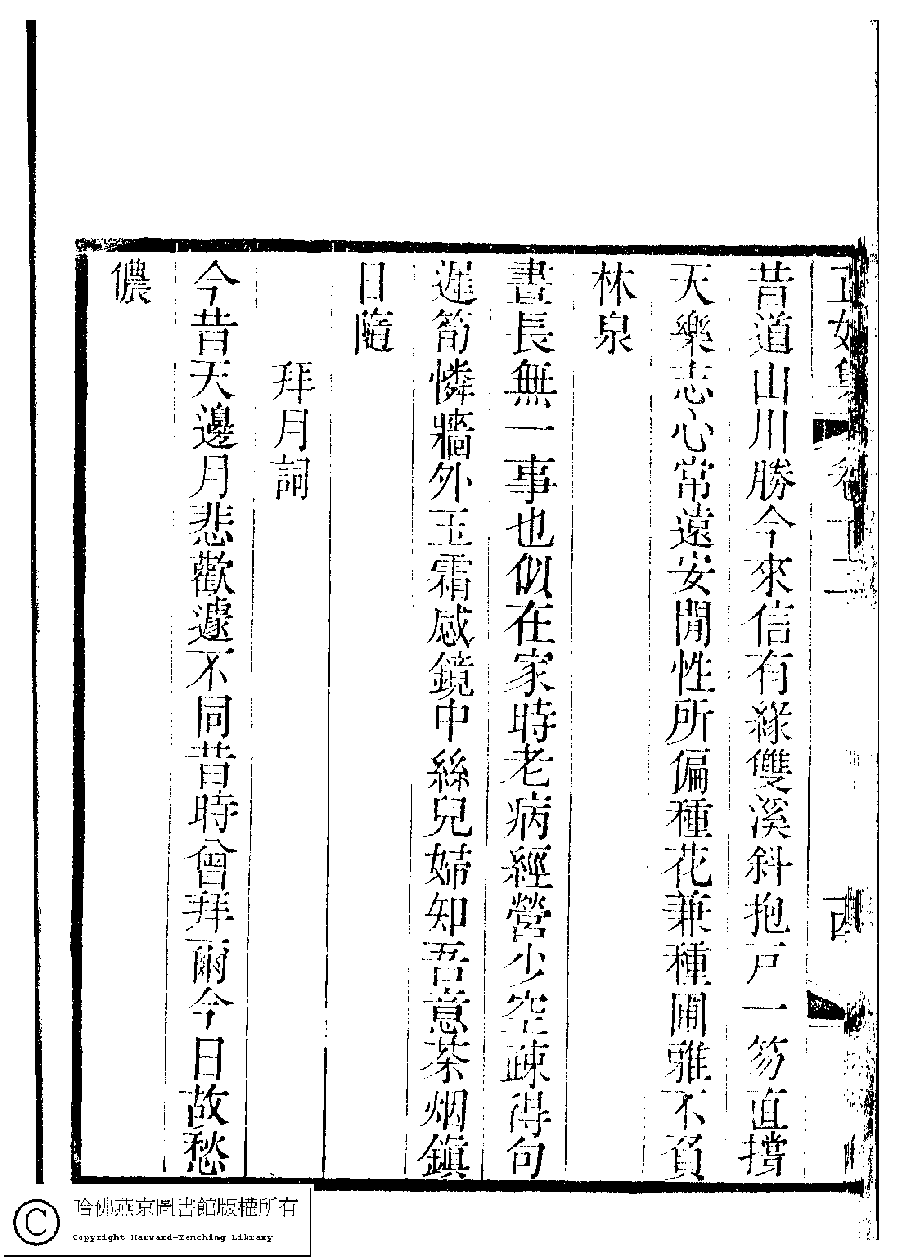 正始集 卷十二
昔道山川勝今來信有緣雙溪斜抱戸一笏直撐
天樂志心常遠安閒性所偏種花兼種圃雅不負
林泉
晝長無一事也似在家時老病經營少空疎得句
遲筍憐牆外玉霜感鏡中絲兒婦知吾意茶烟鎮
日隨
拜月詞
今昔天邊月悲歡遽不同昔時曾拜爾今日故愁
儂
哈佛燕京圖書館版權所有
Copyright Harvard-Yenching Library